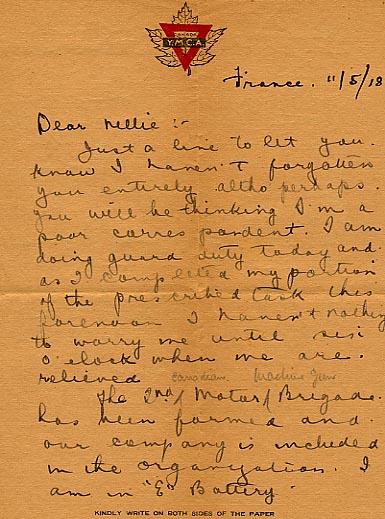 CANADIAN
Y.M.C.A.
France. 11/5/18
Dear Nellie :-
Just a line to let you
know I haven't forgotten
you entirely altho perhaps
you will be thinking I'm a
poor correspondent. I am
doing guard duty today and
as I completed my portion
of the prescribed task this
forenoon I haven't nothing
to worry me until six
o'clock when we are
relieved
Canadian Machine Gun
The 2nd/ Motor/ Brigade
has been formed and
our company is included
in the organization. I
am in "E" Battery
KINDLY WRITE ON BOTH SIDES OF THE PAPER